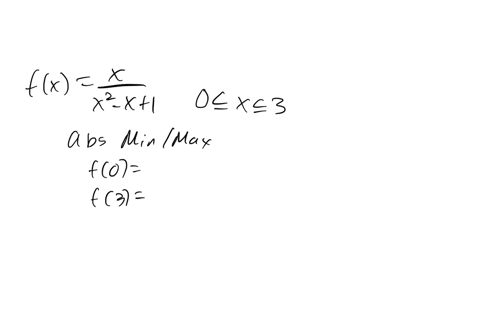 f(x) = x / (x² - x + 1)   0 ≤ x ≤ 3
Abs Min/Max
f(0) =
f(3) =